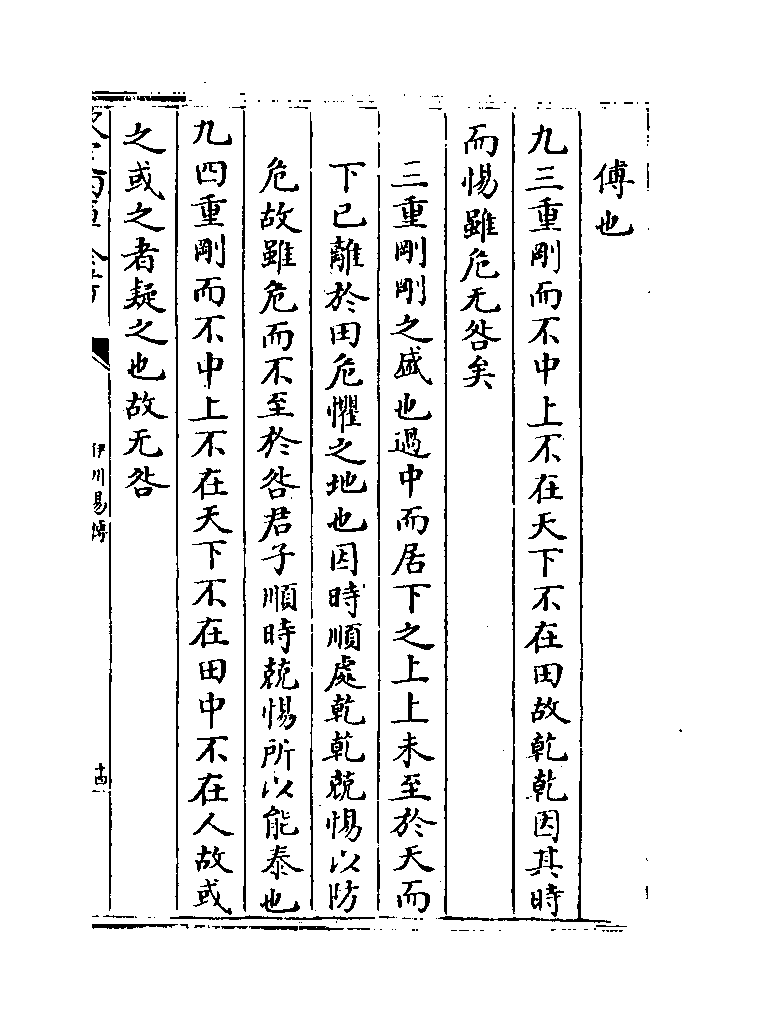 傅也
九三重剛而不中上不在天下不在田故乾乾因其時
而惕雖危无咎矣
三重剛剛之盛也過中而居下之上上未至於天而
下已離於田危懼之地也因時順處乾乾兢惕以防
危故雖危而不至於咎君子順時兢惕所以能泰也
九四重剛而不中上不在天下不在田中不在人故或
之或之者疑之也故无咎
伊川易傳
十四